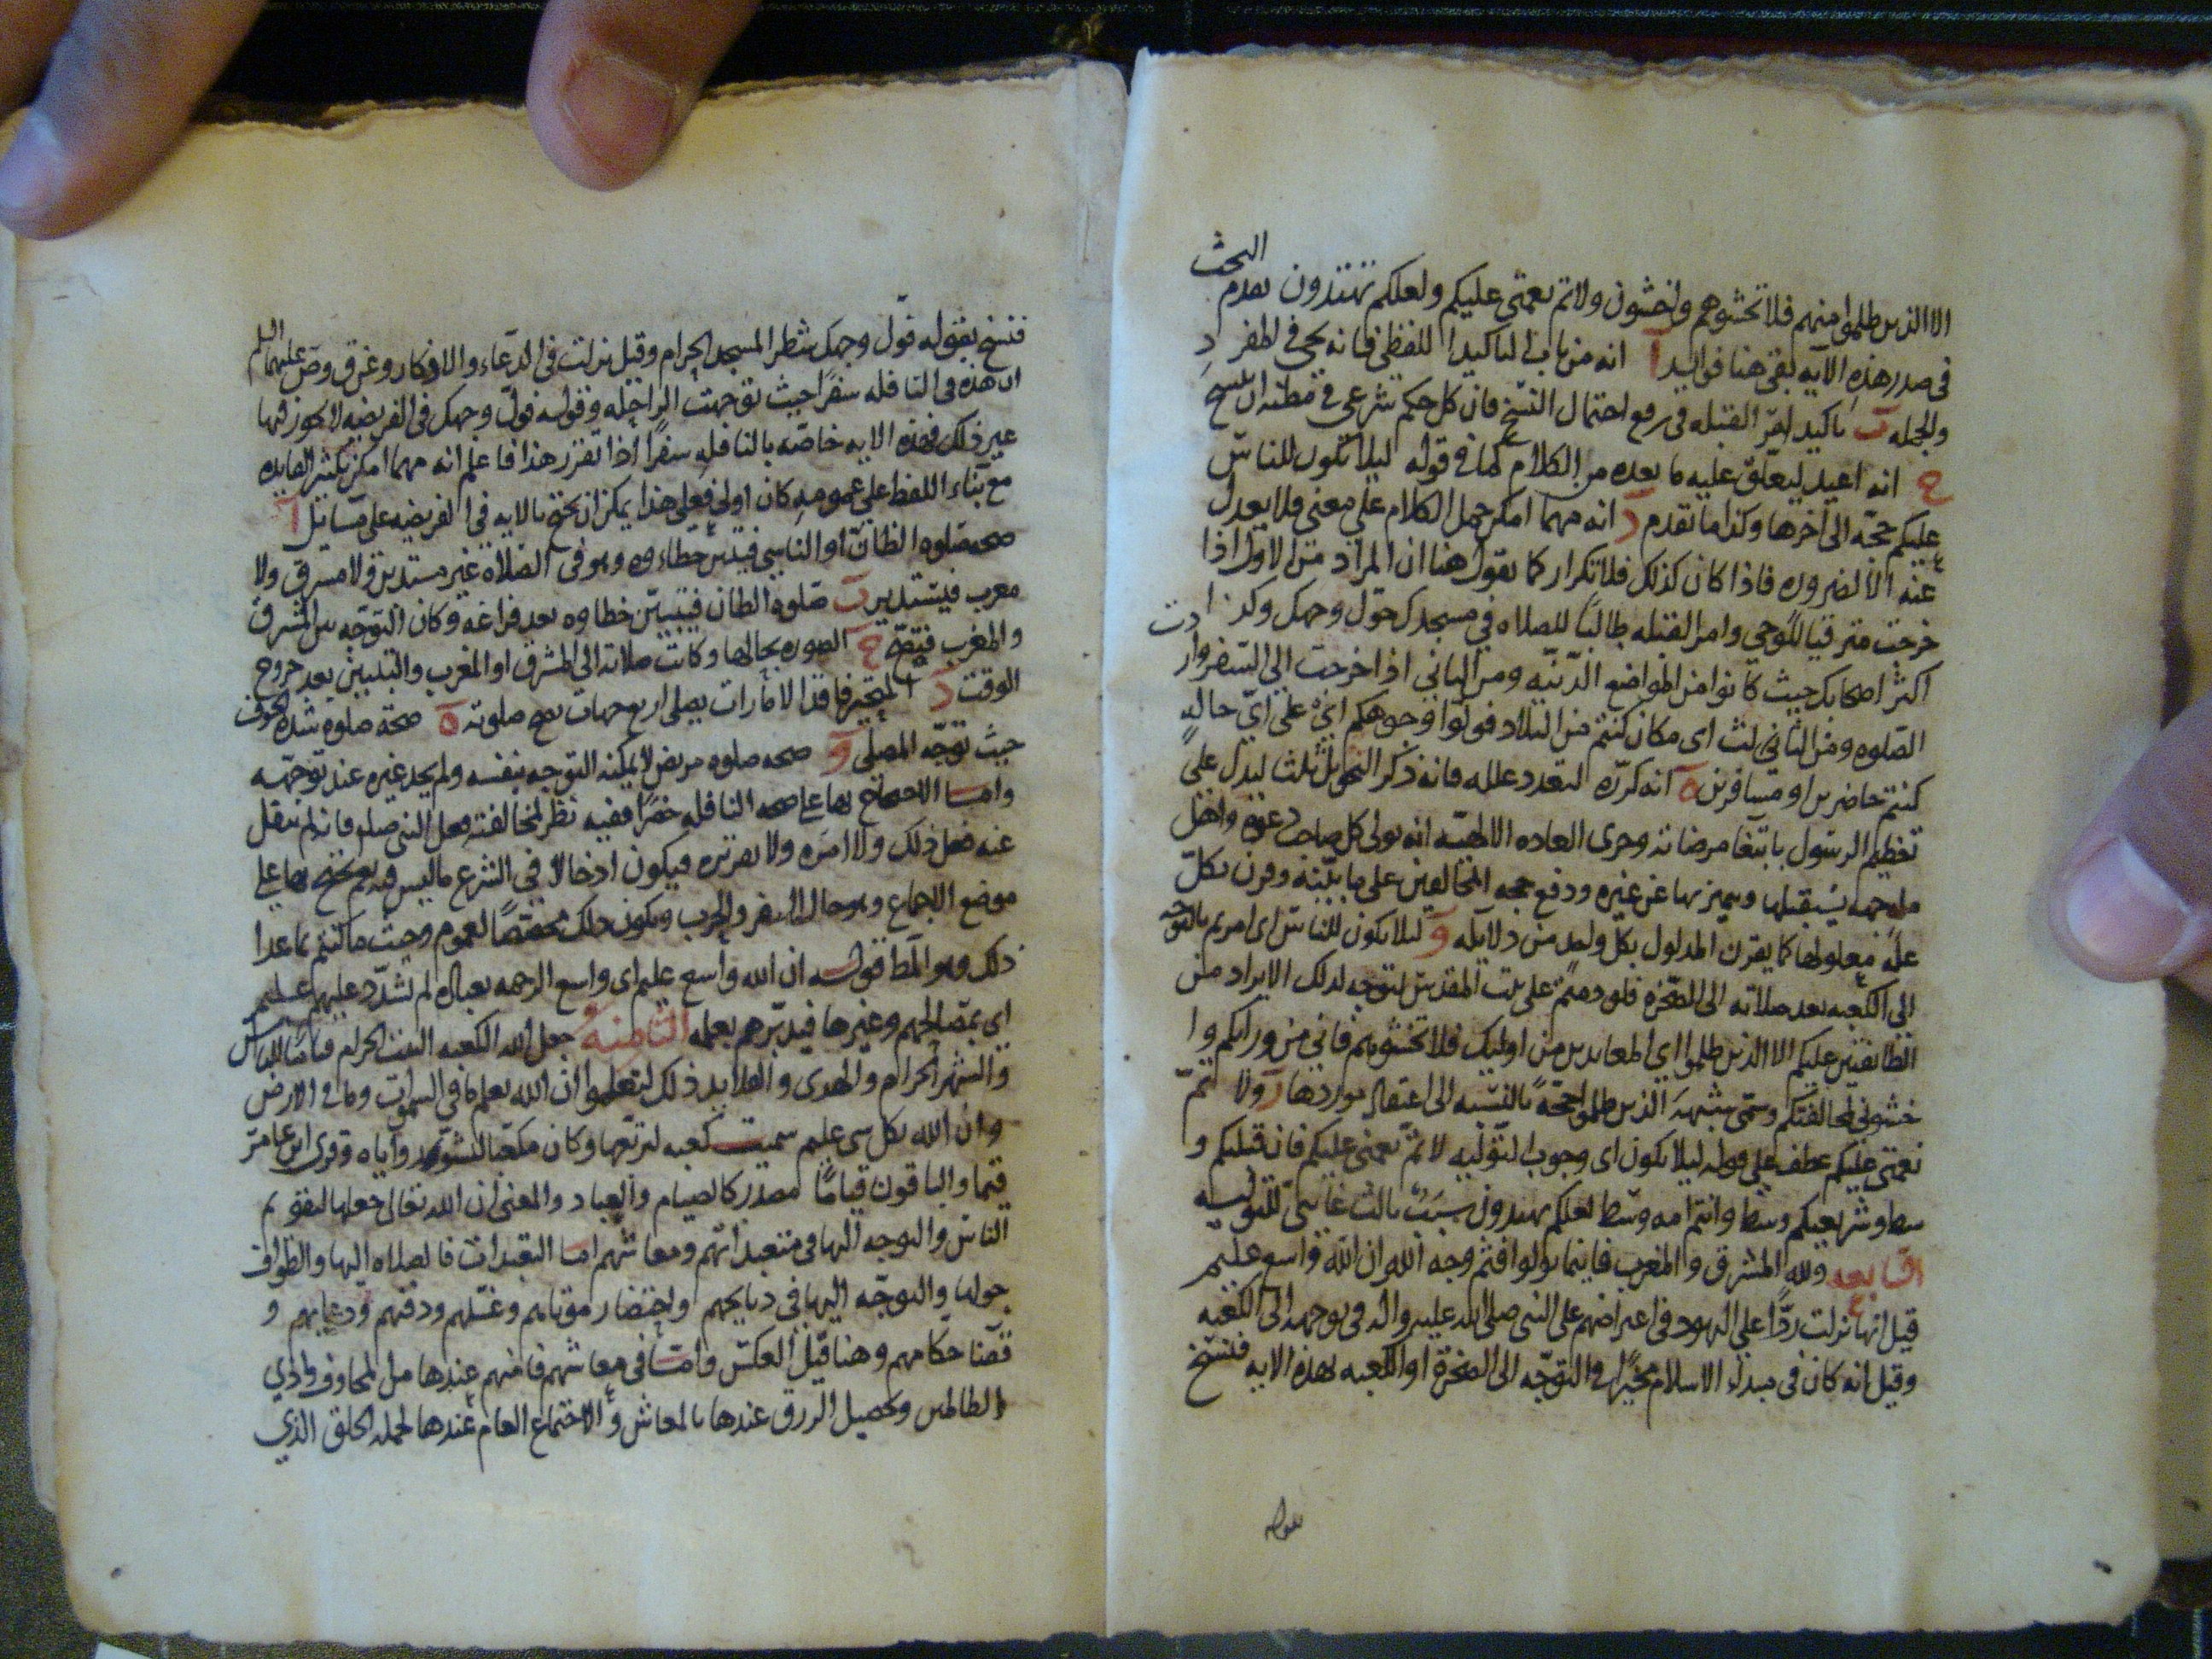 البحث
الا الذين ظلموا منهم فلا تخشوهم واخشون ولاتم نعمتى عليكم ولعلكم تهتدون تقدم
فى صدر هذه الآيه بقى هنا فوايد آ انه من باب التاكيد اللفظى فانه يجى فى المفرد
والجمله ب تاكيد لامر القبله فى رفع احتمال النسخ فان كل حكم شرعى فى مظنه ان ينسخ
ج انه اعيد ليعلق عليه ما بعده من الكلام كما فى قوله ليلا تكون للناس
عليكم حجه الى آخرها وكذا ما تقدم د انه مهما امكن حمل الكلام على معنى فلا يعدل
عنه الا لضروره فاذا كان كذلك فلا تكرار كما نقول هنا ان المراد من الاول اذا
خرجت مترقبا للوحى وامر القبله طالبا للصلاه فى مسجدك حول وجهك وكذا ادت
اكثر اصحابك حيث كانوا من المواضع الدنيه ومن الثانى اذا خرجت الى السفر وار
الصلوه ومن الثالث اى مكان كنتم من البلاد فولوا وجوهكم اى على اى حاله
كنتم حاضرين او مسافرين ه انه كرره لتعدد علله فانه ذكر التحويل ثلث ليدل على
تعظيم الرسول بابتغا مرضاته وجرى العاده الالهيه انه يولى كل صاحب دعوة واهل
مله جهه يستقبلها ويميز بها عن غيره ودفع حجه المخالفين على ما بينه وقرن بكل
علة معلولها كما يقرن المدلول بكل واحد من دلايله و ليلا يكون للناس اى امرتم بالتوجه
الى الكعبه بعد صلاته الى الصخره فلو دمتم على بيت المقدس لتوجه لذلك الايراد من
الطايفتين عليكم الا الذين ظلموا اى المعاندين من اوليك فلا تخشوهم فانى من ورايكم وا
خشونى لمخالفتكم وسمى شبهة الذين ظلموا حجة بالنسبه الى اعتقاد موردها ز ولا تم
نعمتى عليكم عطف على قوله ليلا يكون اى وجوب التوليه لاتم نعمتى عليكم فان قبلتكم و
سط وشريعتكم وسط وانتم امه وسط لعلكم تهتدون سبب ثالث غايى للتوليه
الرابعه ولله المشرق والمغرب فاينما تولوا فثم وجه الله ان الله واسع عليم
قيل انها نزلت ردا على اليهود فى اعتراضهم على النبى صلى الله عليه واله فى توجهه الى الكعبه
وقيل انه كان فى مبداء الاسلام مخيرا فى التوجه الى الصخرة او الكعبه بهذه الايه فنسخ
بقوله
فنسخ بقوله فول وجهك شطر المسجد الحرام وقيل نزلت فى الدعاء والاذكار وعن ق و ص عليهما السلم
ان هذه فى النافله سفرا حيث توجهت الراحله وقوله فول وجهك فى الفريضه لا يجوز فيها
غير ذلك فهذه الايه خاصه بالنافله سفرا اذا تقرر هذا فاعلم انه مهما امكن تكثر الفايده
مع بقاء اللفظ على عمومه كان اولى فعلى هذا يمكن ان يحتج بالايه فى الفريضه على مسايل آ
صحه صلوه الظان او الناسى فيتبين خطاءه وهو فى الصلاه غير مستدبر ولا مشرق ولا
مغرب فيستدير ب صلوه الظان فيتبين خطاوه بعد فراغه وكان التوجه بين المشرق
والمغرب فتصح ج الصوره بحالها وكانت صلاته الى المشرق او المغرب والتبيين بعد خروج
الوقت د المتحير فاقد الامارات يصلى اربع جهات تصح صلوته ه صحة صلوه شده الخوف
حيث توجه المصلى و صحه صلوه مريض لا يمكنه التوجه بنفسه ولم يجد غيره عند توجهه
واما الاحتجاج بها على صحه النافله حضرا ففيه نظر لمخالفته فعل النبى صلع فانه لم ينقل
عنه فعل ذلك ولا امره ولا تقريره فيكون ادخالا فى الشرع ما ليس فيه نعم يحتج بها على
موضع الاجماع وهو حال السفر والحرب ويكون ذلك مخصصا لعموم وحيث ما كنتم بما عدا
ذلك وهو المط قوله ان الله واسع عليم اى واسع الرحمه بعباده لم يشدد عليهم عليم
اى بمصالحهم وغيرها فيدبرهم بعلمه الثامنه جعل الله الكعبه البيت الحرام قياما للناس
والشهر الحرام والهدى والقلايد ذلك لتعلموا ان الله يعلم ما فى السموات وما فى الارض
وان الله بكل شى عليم سميت كعبه لتربعها وكان مكعبا وقرى ابن عامر
قيما والباقون قياما مصدر كالصيام والعياد والمعنى ان الله تعالى جعلها لتقويم
الناس والتوجه اليها فى متعبداتهم ومعاشهم اما التعبدات فالصلاه اليها والطواف
حولها والتوجه اليها فى ذبايحهم واحتضار موتاهم وغسلهم ودفنهم ودعايهم و
قضا حكامهم وهنا قيل العكس واما فى معاشهم فامنهم عندها من المخاوف واذى
الظالمين وتحصيل الرزق عندها بالمعاش والاجتماع العام عندها لجمله الخلق الذى